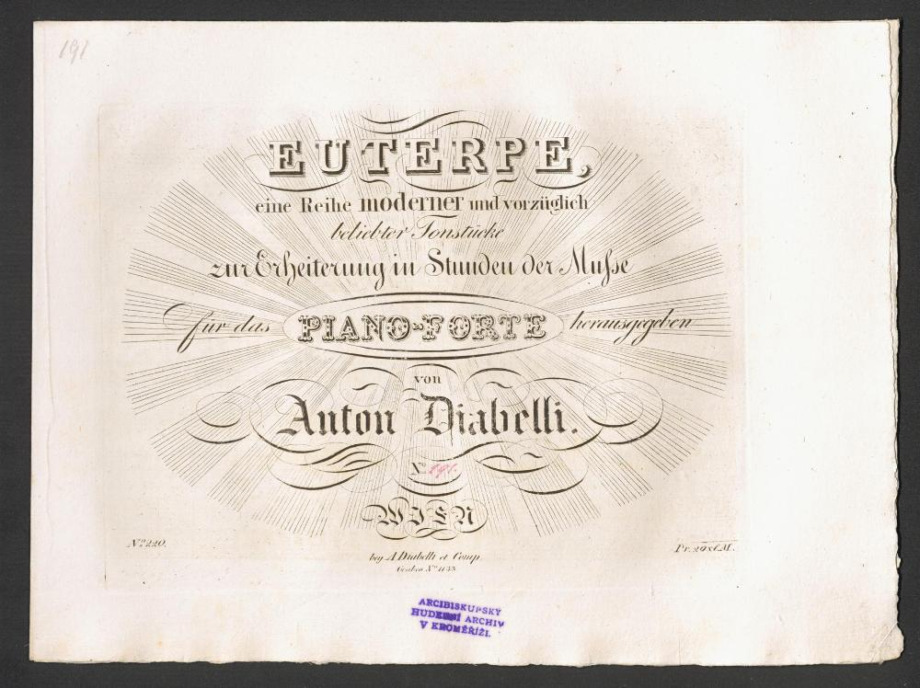 191
EUTERPE,
eine Reihe moderner und vorzüglich
beliebter Tonstücke
zur Erheiterung in Stunden der Musse
für das PIANO-FORTE herausgegeben
von
Anton Diabelli.
No. 191.
WIEN
No. 220.
Pr.
bey A. Diabelli et Comp.
Graben No. 1133.
ARCIBISKUPSKÝ
HUDEBNÍ ARCHIV
V KROMĚŘÍŽI.